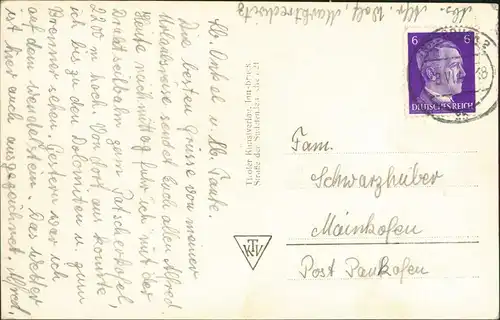 Abs. Mfr. Wolf, Marktredwitz
Lb. Onkel u. lb. Tante.
Die besten Grüsse von meiner
Urlaubsreise sendet Euch allen Alfred.
Heute nachmittag fuhr ich mit der
Drahtseilbahn zum Patscherkofel,
2200 m hoch. Von dort aus konnte
ich bis zu den Dolomiten u. zum
Brenner sehen. Gestern war ich
auf dem Wendelstein. Das Wetter
ist hier auch ausgezeichnet. Alfred.
Tiroler Kunstverlag, Innsbruck
Straße der Sudetendeutschen 21
KTV
6 6
DEUTSCHES REICH
Fam.
Schwarzhuber
Mainkofen
Post Pankofen